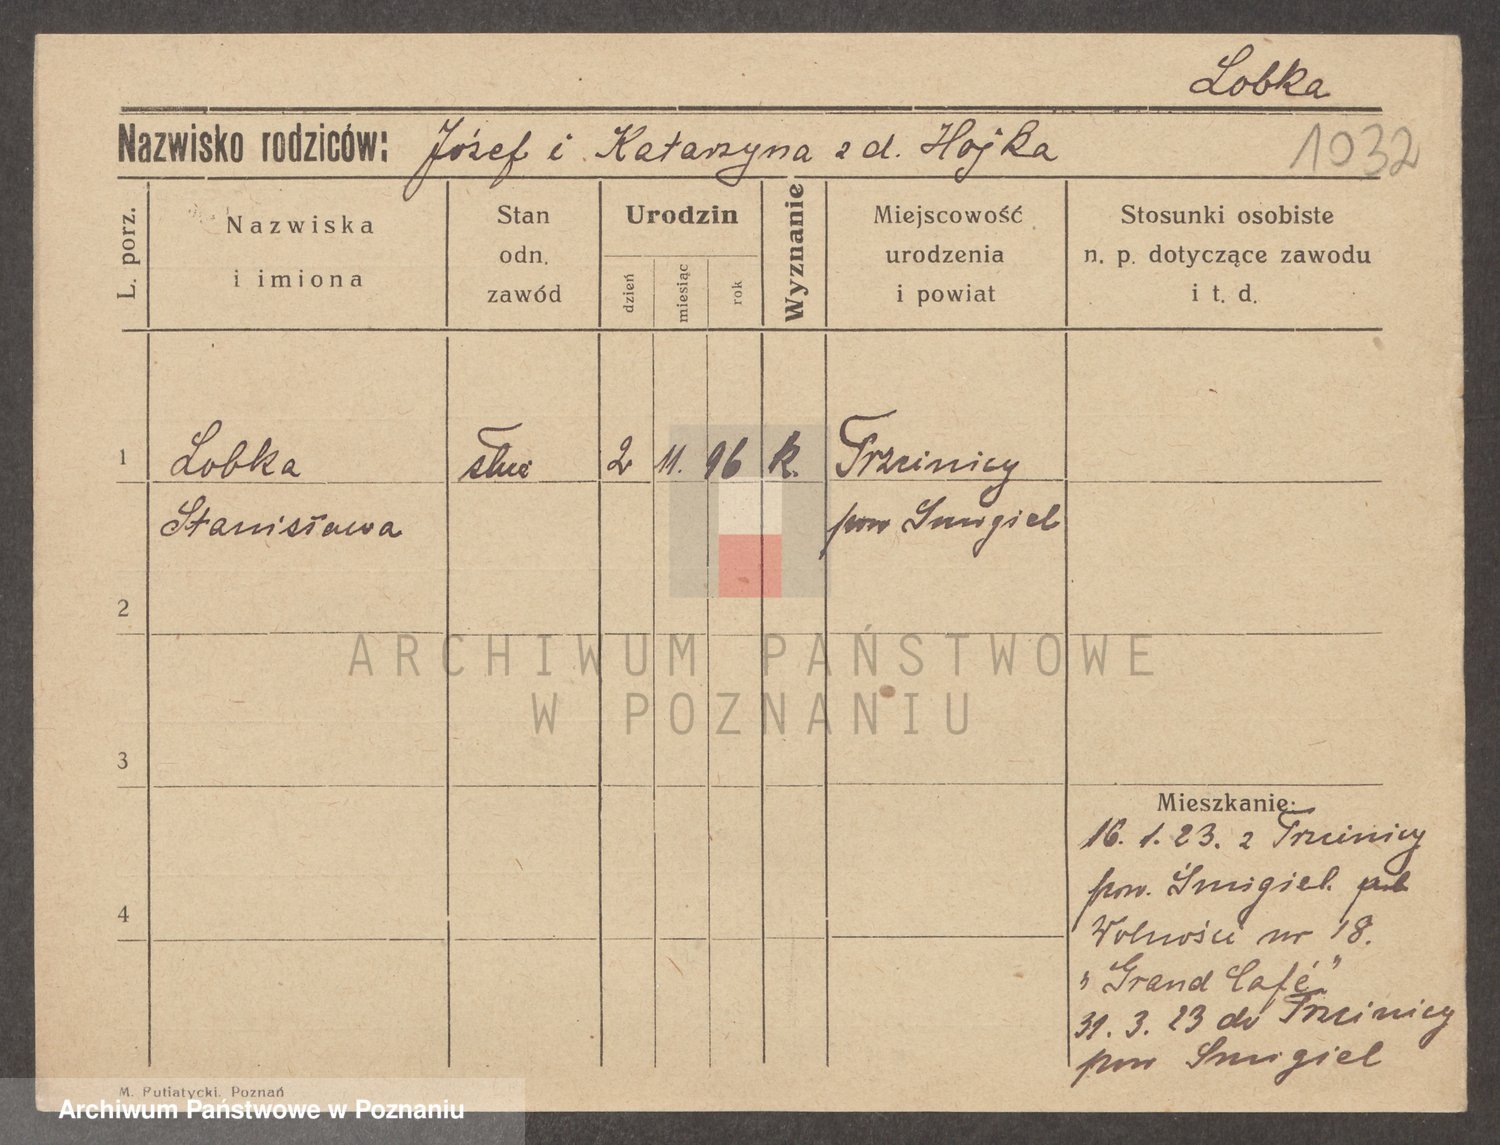 Lobka
Nazwisko rodziców: Józef i Katarzyna z d. Hojka
1032
L. porz.
Nazwiska
i imiona
Stan
odn.
zawód
Urodzin
dzień
miesiąc
rok
Wyznanie
Miejscowość
urodzenia
i powiat
Stosunki osobiste
n. p. dotyczące zawodu
i t. d.
1 Lobka 2 11. 96 k. Trzcinicy
Stanisława pow Smigiel
2
ARCHIWUM PAŃSTWOWE
W POZNANIU
3
Mieszkanie:
16. 1. 23. z Trzcinicy
pow. Śmigiel.
4
Wolności nr 18.
"Grand Café"
31. 3. 23 do Trzcinicy
pow Smigiel
M. Putiatycki, Poznań
Archiwum Państwowe w Poznaniu